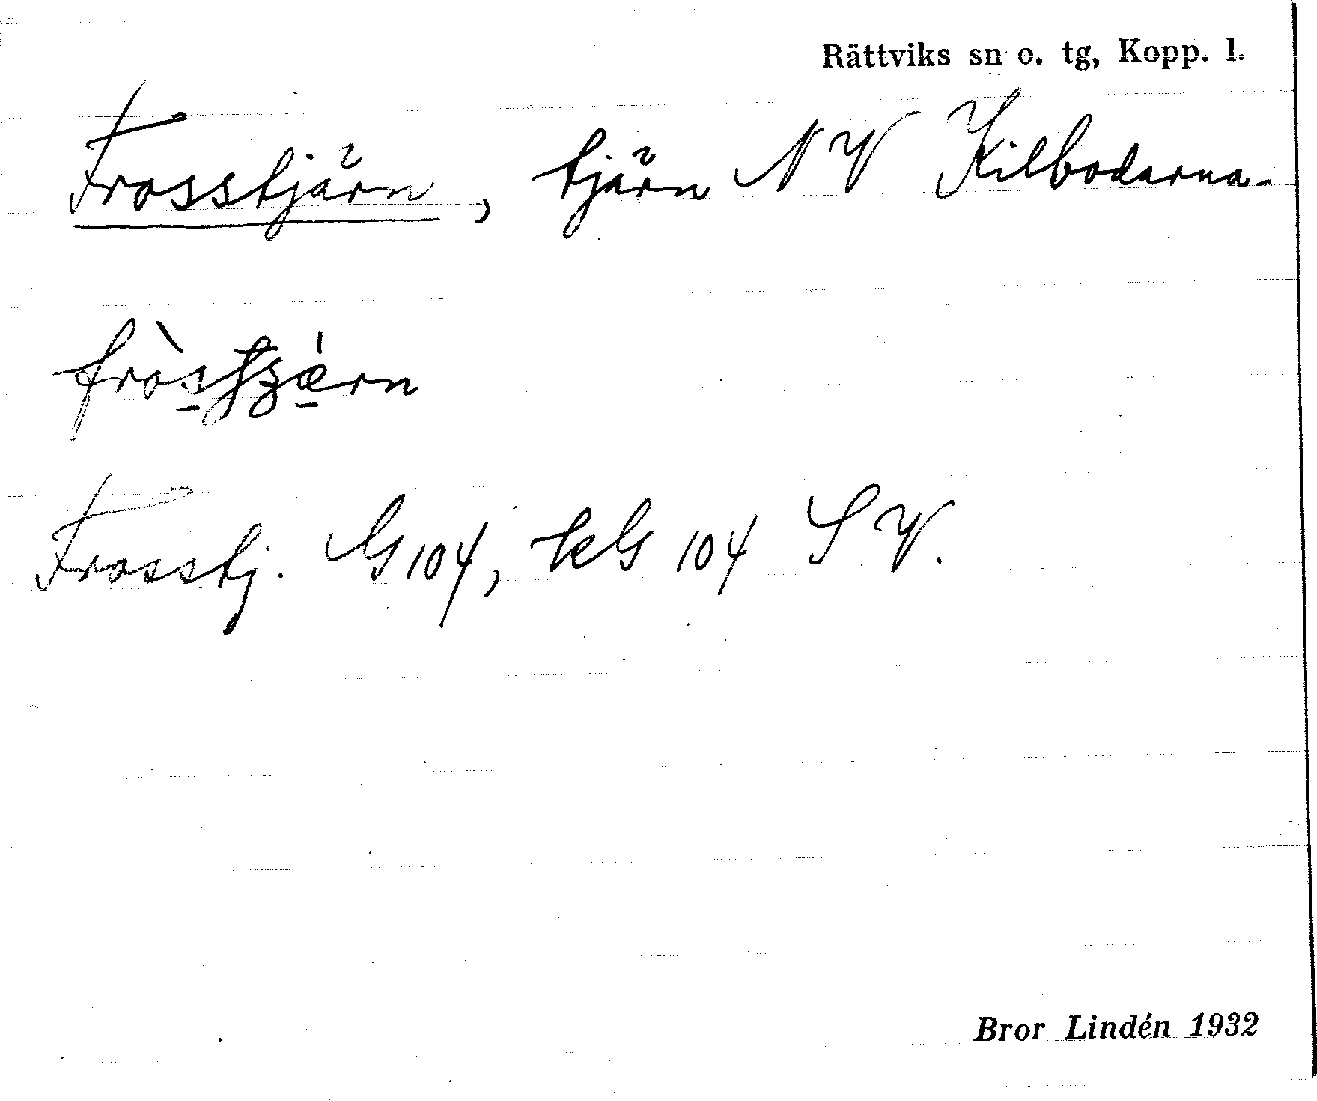 Rättviks sn o. tg, Kopp. l.
Frosstjärn, tjärn NV Kilbodarna.
Frosstj. G 104, kG 104 SV.
Bror Lindén 1932